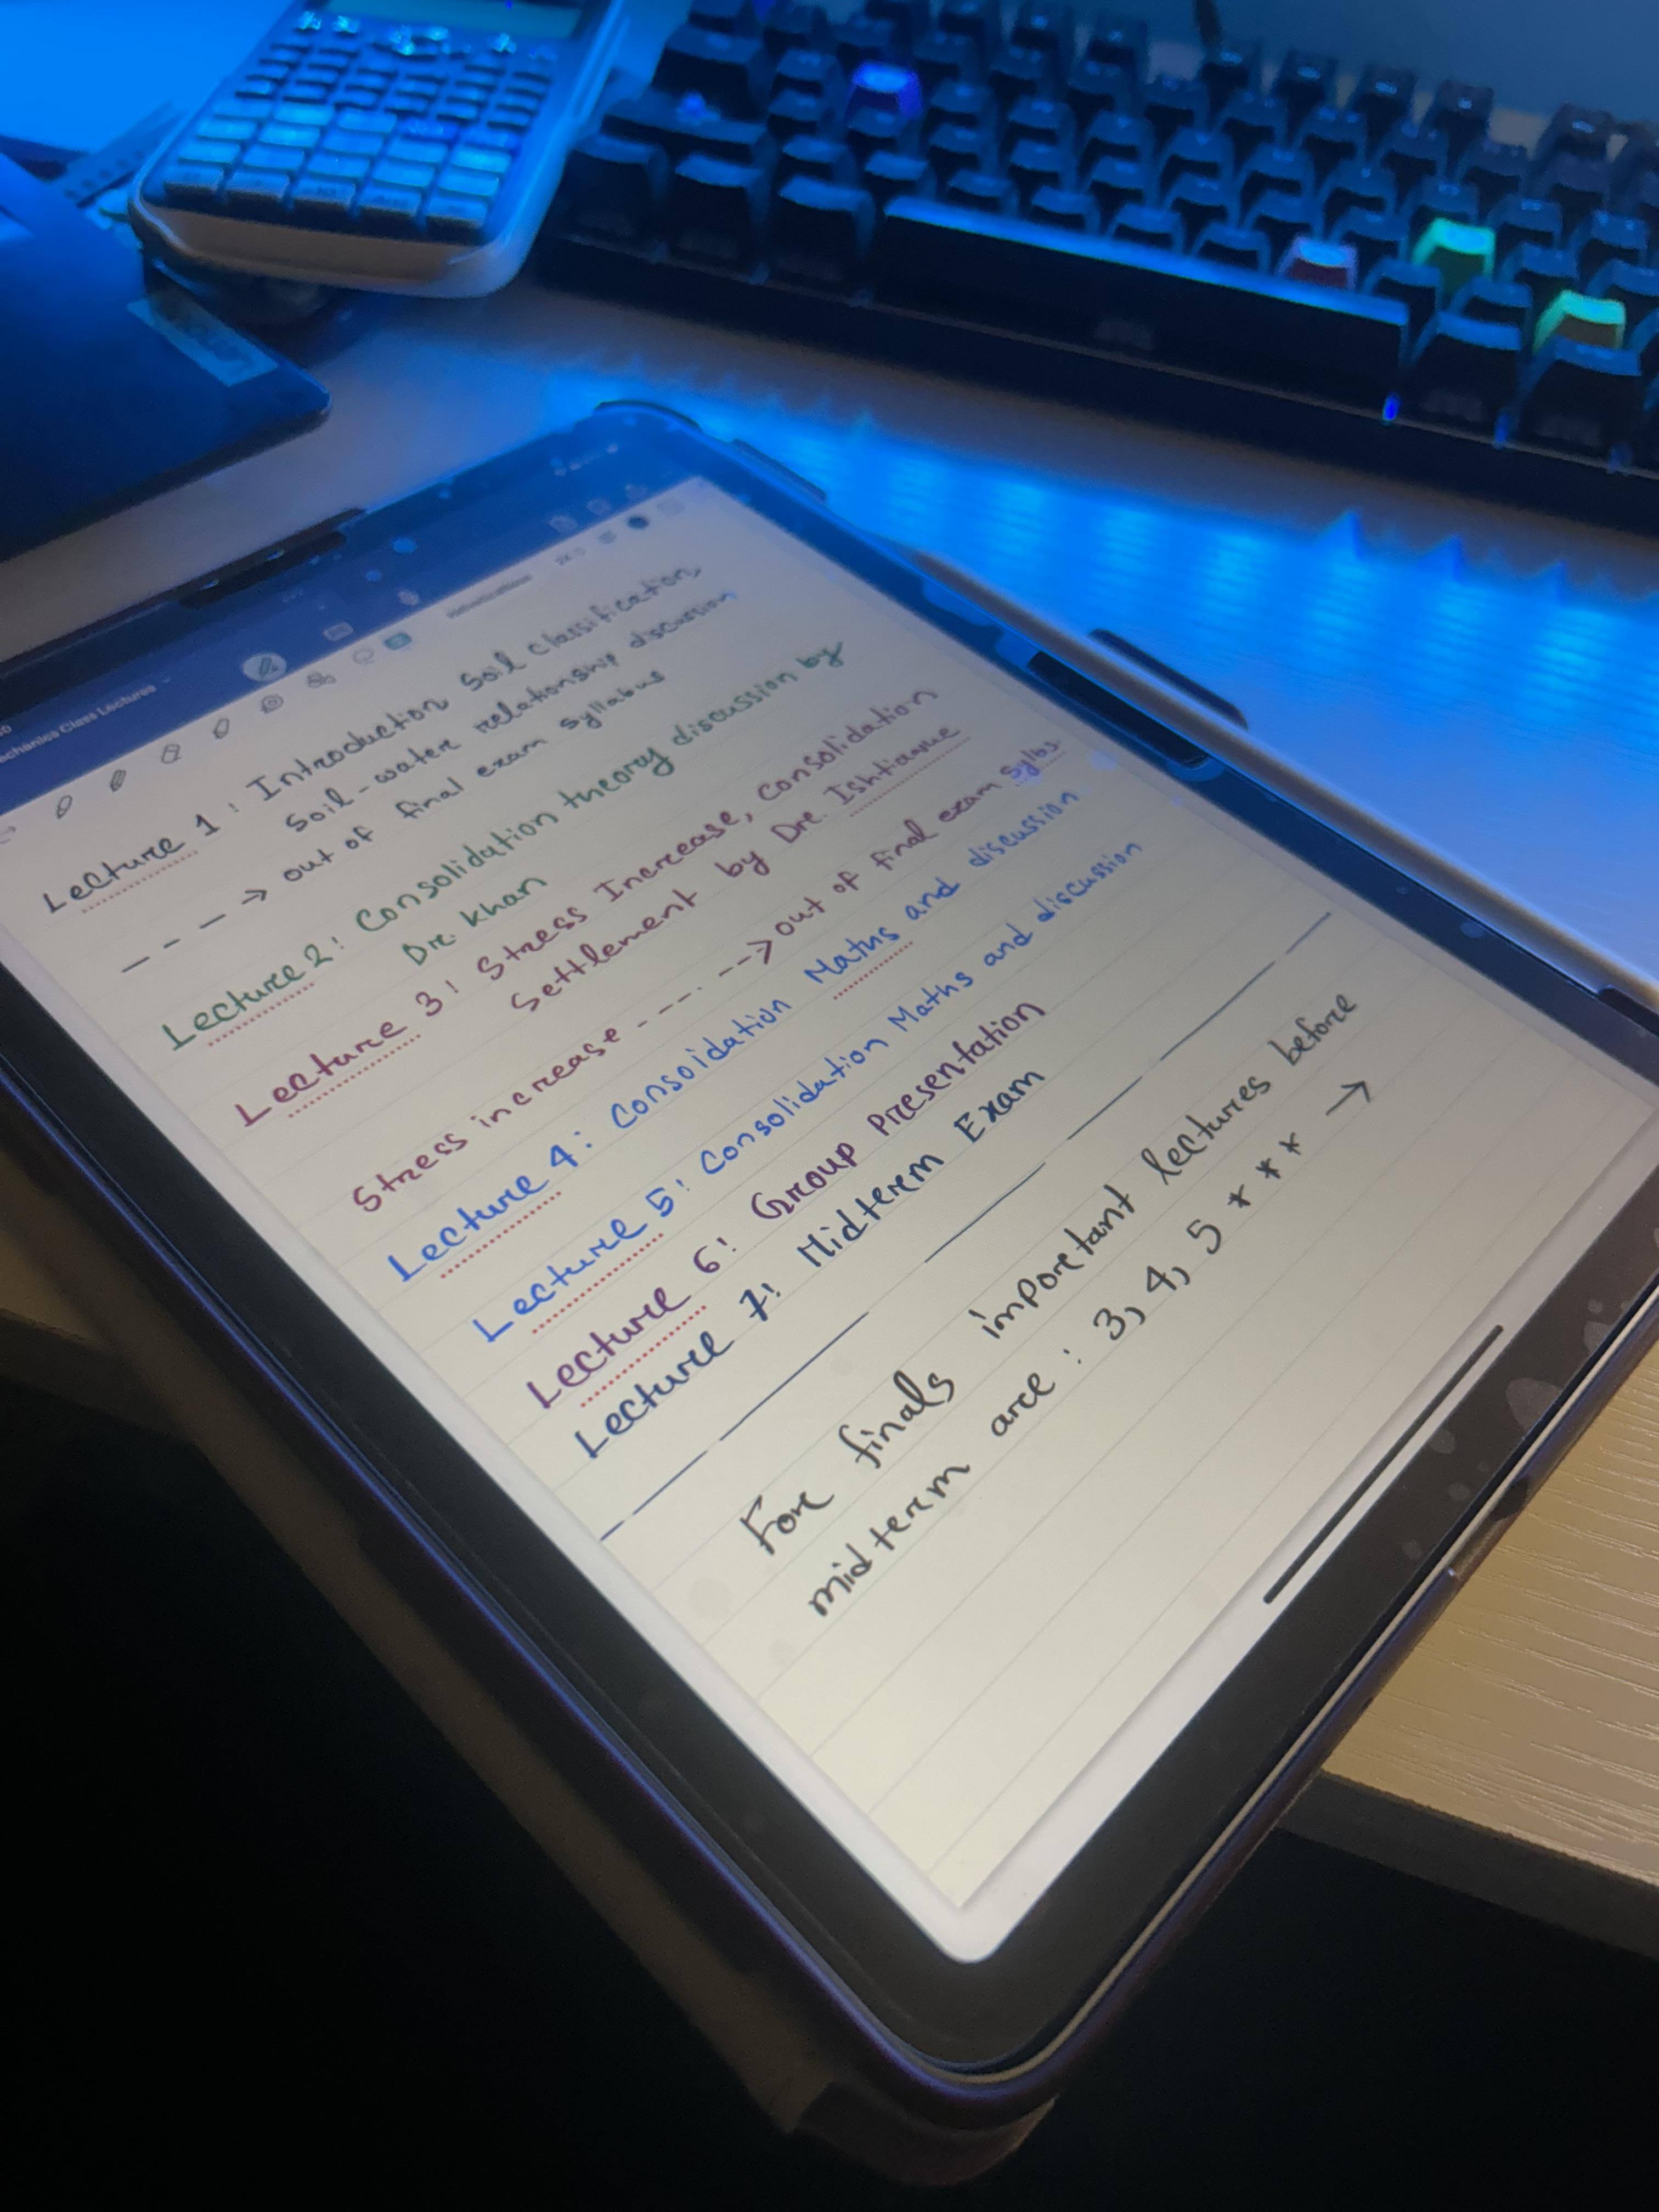 echanics Class Lectures
Lecture 1: Introduction Soil classification,
Soil-water relationship discussion
---> out of final exam syllabus
Lecture 2: Consolidation theory discussion by
Dr. Khan
Lecture 3: Stress Increase, Consolidation
Settlement by Dr. Ishtiaque
Stress increase -----> out of final exam sylbs.
Lecture 4: Consoidation Maths and discussion
Lecture 5: Consolidation Maths and discussion
Lecture 6: Group Presentation
Lecture 7: Midterm Exam
For finals important lectures before
midterm are: 3, 4, 5 *** →